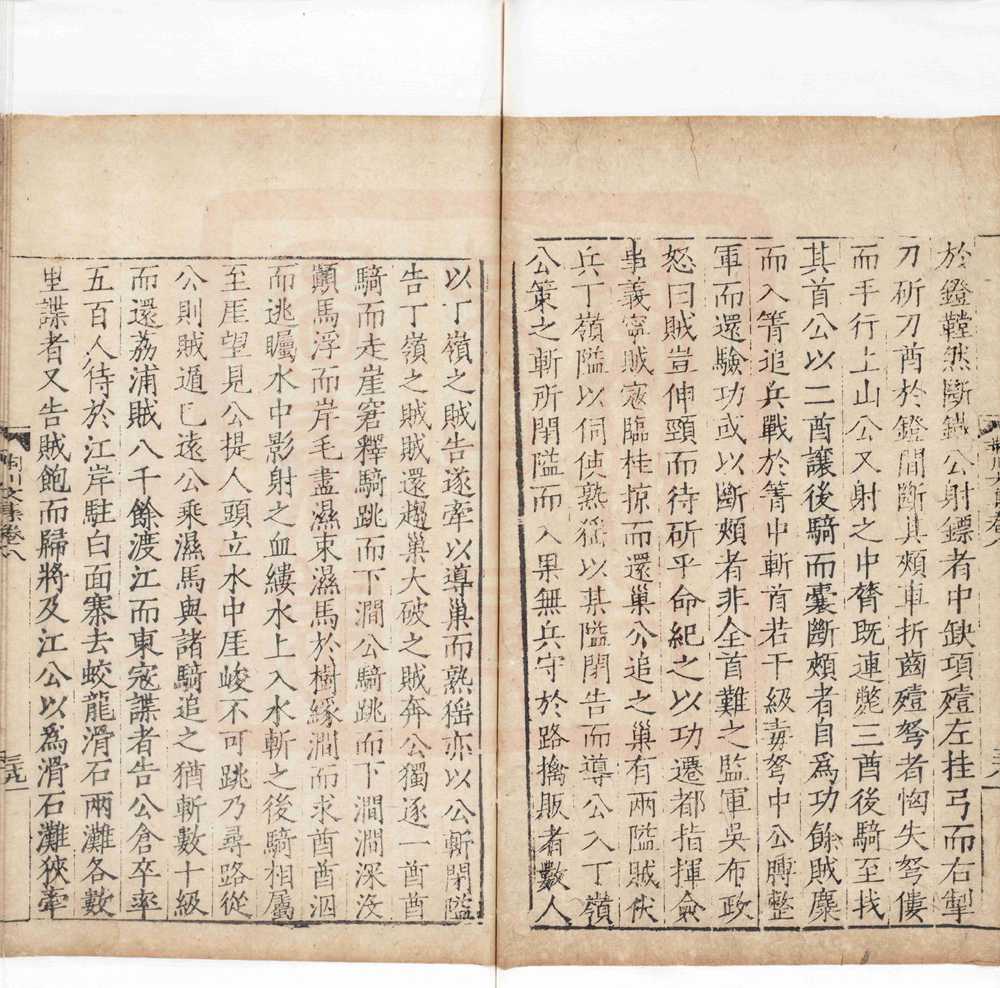 於鐙鞺然斷鐵公射鏢者中缺項殪左挂弓而右掣
刀斫刀酋於鐙間斷其頰車折齒殪弩者恟失弩僂
而手行上山公又射之中膂既連斃三酋後騎至找
其首公以二酋讓後騎而囊斷頰者自為功餘賊麋
而入箐追兵戰於箐中斬首若干級毒弩中公膊整
軍而還驗功或以斷頰者非全首難之監軍吳布政
怒曰賊豈伸頸而待斫乎命紀之以功遷都指揮僉
事義寧賊寇臨桂掠而還巢公追之巢有兩隘賊伏
兵丁嶺隘以伺使熟猺以某隘閉告而導公入丁嶺
公策之斬所閉隘而入果無兵守於路擒販者數人
以丁嶺之賊告遂牽以導巢而熟猺亦以公斬閉隘
告丁嶺之賊賊還趨巢大破之賊奔公獨逐一酋酋
騎而走崖窘釋騎跳而下澗公騎跳而下澗澗深沒
顛馬浮而岸毛盡濕束濕馬於樹緣澗而求酋酋泅
而逃矚水中影射之血縷水上入水斬之後騎相屬
至厓望見公提人頭立水中厓峻不可跳乃尋路從
公則賊遁已遠公乘濕馬與諸騎追之猶斬數十級
而還荔浦賊八千餘渡江而東寇諜者告公倉卒率
五百人待於江岸駐白面寨去蛟龍滑石兩灘各數
里諜者又告賊飽而歸將及江公以為滑石灘狹牽
荊川文集卷八